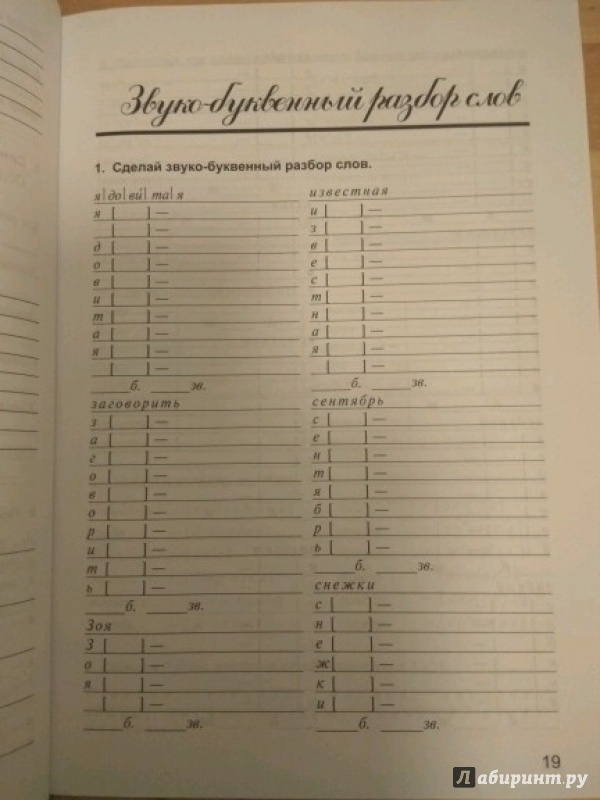 Звуко-буквенный разбор слов
1. Сделай звуко-буквенный разбор слов.
я|до|ви́|та|я
я [ ] —
[ ] —
д [ ] —
о [ ] —
в [ ] —
и [ ] —
т [ ] —
а [ ] —
я [ ] —
[ ] —
____б. ____зв.
заговорить
з [ ] —
а [ ] —
г [ ] —
о [ ] —
в [ ] —
о [ ] —
р [ ] —
и [ ] —
т [ ] —
ь [ ] —
____б. ____зв.
Зоя
З [ ] —
о [ ] —
я [ ] —
[ ] —
____б. ____зв.
известная
и [ ] —
з [ ] —
в [ ] —
е [ ] —
с [ ] —
т [ ] —
н [ ] —
а [ ] —
я [ ] —
[ ] —
____б. ____зв.
сентябрь
с [ ] —
е [ ] —
н [ ] —
т [ ] —
я [ ] —
б [ ] —
р [ ] —
ь [ ] —
____б. ____зв.
снежки
с [ ] —
н [ ] —
е [ ] —
ж [ ] —
к [ ] —
и [ ] —
____б. ____зв.
19
Лабиринт.ру